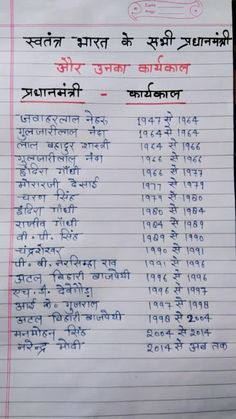 स्वतंत्र भारत के सभी प्रधानमंत्री
और उनका कार्यकाल
प्रधानमंत्री - कार्यकाल
जवाहरलाल नेहरू 1947 से 1964
गुलजारीलाल नंदा 1964 से 1964
लाल बहादुर शास्त्री 1964 से 1966
गुलजारीलाल नंदा 1966 से 1966
इंदिरा गाँधी 1966 से 1977
मोरारजी देसाई 1977 से 1979
चरण सिंह 1979 से 1980
इंदिरा गाँधी 1980 से 1984
राजीव गाँधी 1984 से 1989
वी. पी. सिंह 1989 से 1990
चंद्रशेखर 1990 से 1991
पी. वी. नरसिम्हा राव 1991 से 1996
अटल बिहारी वाजपेयी 1996 से 1996
एच. डी. देवेगौड़ा 1996 से 1997
आई के. गुजराल 1997 से 1998
अटल बिहारी वाजपेयी 1998 से 2004
मनमोहन सिंह 2004 से 2014
नरेन्द्र मोदी 2014 से अब तक